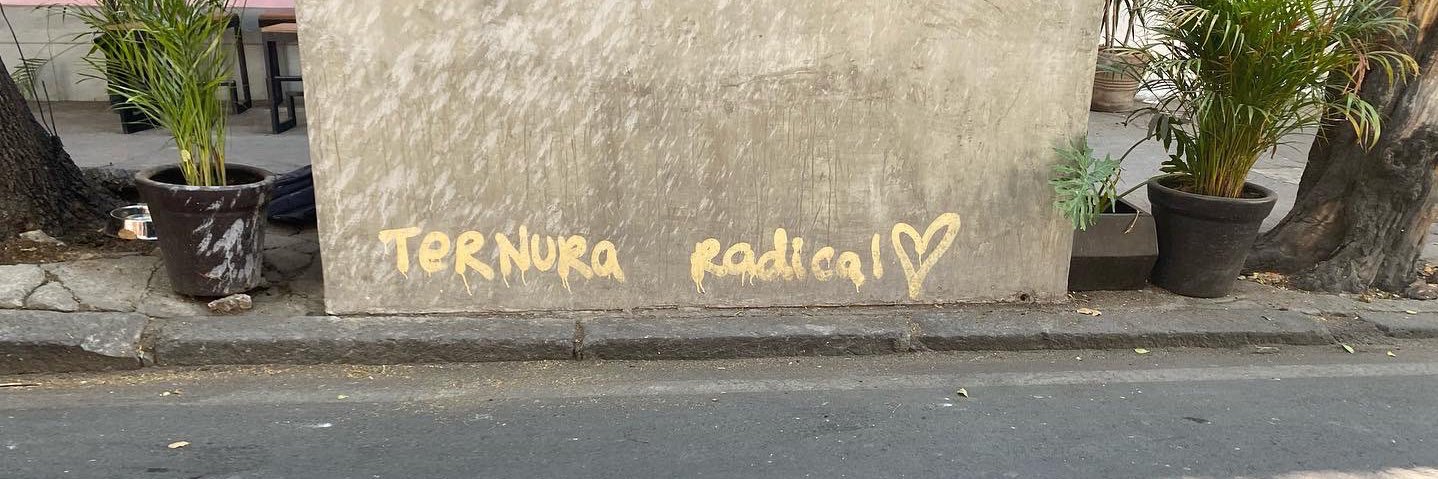 TERNURA radical♡